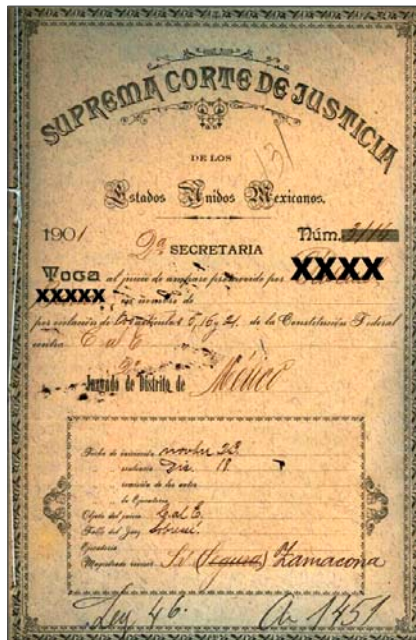 SUPREMA CORTE DE JUSTICIA
131
DE LOS
Estados Unidos Mexicanos.
1901 Núm.
2ª SECRETARIA
Toca al juicio de amparo promovido por XXXX
XXXXX en nombre de
por violación de los artículos 5, 16 y 21, de la Constitución Federal
contra
2º
Juzgado de Distrito de México
Fecha de iniciación novbre 23
sentencia Dic. 18
remisión de los autos
la Ejecutoria
Objeto del juicio
Fallo del Juez Sobresée.
Ejecutoria
Magistrado revisor Sr (Segura) Zamacona
Leg 46. A 1451